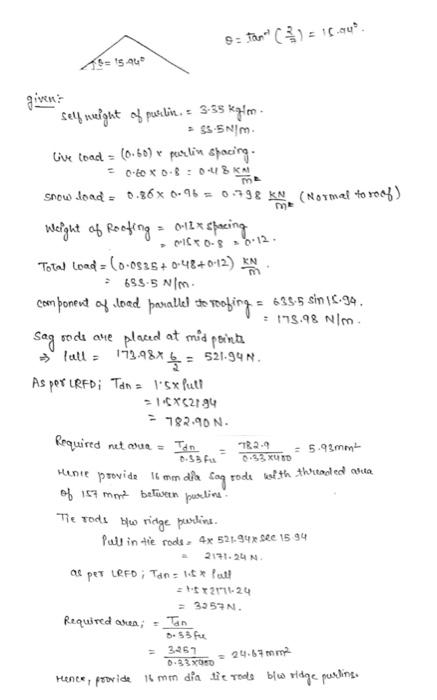 θ = tan⁻¹ (2/7) = 15.94°.
θ = 15.94°
given:-
Self weight of purlin. = 3.35 kg/m.
= 33.5 N/m.
Live load = (0.60) x purlin spacing.
= 0.60 x 0.8 = 0.48 KN/m
Snow load = 0.86 x 0.96 = 0.798 KN/m² (Normal to roof)
Weight of Roofing = x spacing
= 0.15 x 0.8 = 0.12.
Total Load = (0.0335 + 0.48 + 0.12) KN/m
= 633.5 N/m.
component of load parallel to roofing = 633.5 sin 15.94.
= 173.98 N/m.
Sag rods are placed at mid points
⇒ Pull = 173.98 x 6/2 = 521.94 N.
As per LRFD; Tdn = 1.5 x Pull
= 1.5 x 521.94
= 782.90 N.
Required net area = Tdn/0.33 fu = 782.9/0.33x400 = 5.93 mm²
Hence provide 16 mm dia Sag rods with threaded area
of 157 mm² between purlins.
Tie rods b/w ridge purlins.
Pull in tie rods = 4 x 521.94 x sec 15.94
= 2171.24 N.
as per LRFD; Tdn = 1.5 x Pull
= 1.5 x 2171.24
= 3257 N.
Required area; = Tdn/0.33 fu
= 3257/0.33x400 = 24.67 mm²
Hence, provide 16 mm dia tie rods b/w ridge purlins.